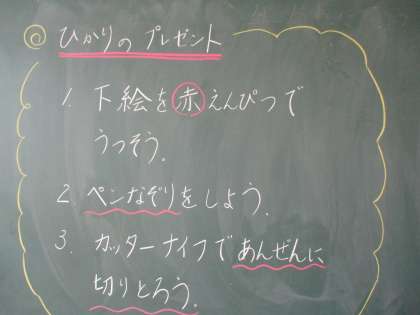 ◎ ひかりのプレゼント
1. 下絵を赤えんぴつで
うつそう.
2. ペンなぞりをしよう.
3. カッターナイフであんぜんに
切りとろう.